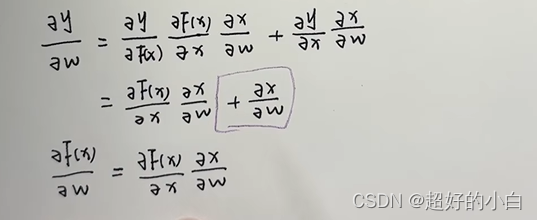 ∂y/∂w = ∂y/∂F(x) ∂F(x)/∂x ∂x/∂w + ∂y/∂x ∂x/∂w
= ∂F(x)/∂x ∂x/∂w + ∂x/∂w
∂F(x)/∂w = ∂F(x)/∂x ∂x/∂w
CSDN @超好的小白